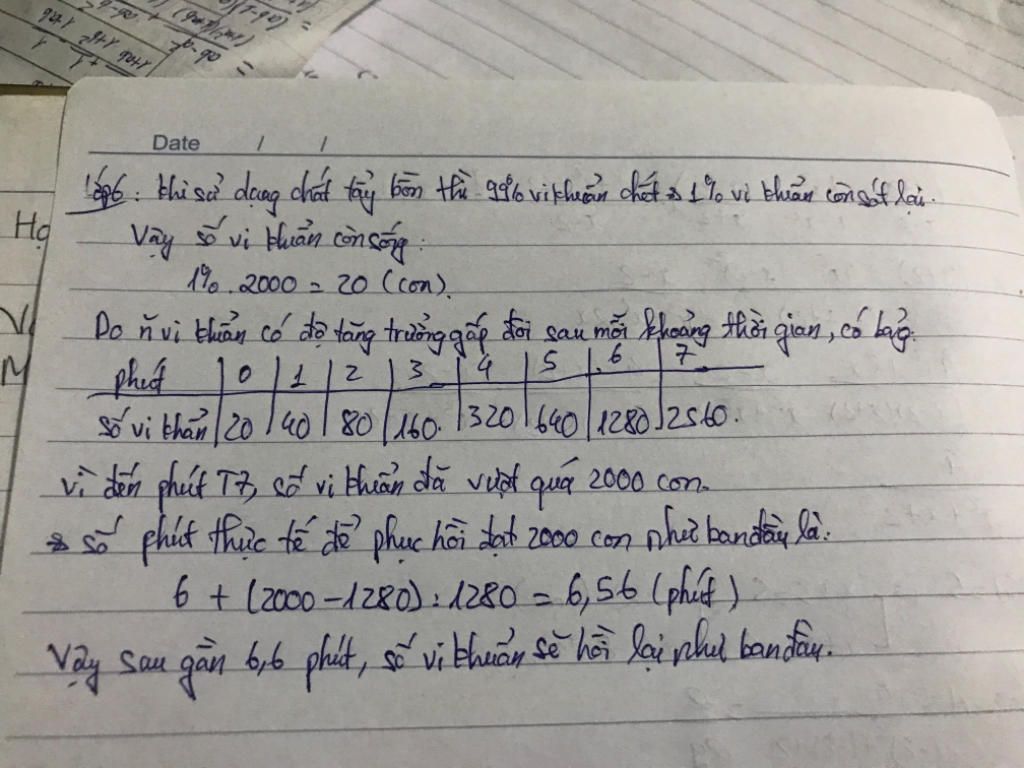 Date / /
Lớp 6: Khi sử dụng chất tẩy bồn thì 99% vi khuẩn chết → 1% vi khuẩn còn sót lại.
Vậy số vi khuẩn còn sống:
1% . 2000 = 20 (con).
Do ñ vi khuẩn có độ tăng trưởng gấp đôi sau mỗi khoảng thời gian, có bảg:
phút | 0 | 1 | 2 | 3 | 4 | 5 | 6 | 7
số vi khẩn | 20 | 40 | 80 | 160. | 320 | 640 | 1280 | 2560.
Vì đến phút T7, số vi khuẩn đã vượt quá 2000 con.
→ số phút thực tế để phục hồi đạt 2000 con như ban đầu là:
6 + (2000 - 1280) : 1280 = 6,56 (phút)
Vậy sau gần 6,6 phút, số vi khuẩn sẽ hồi lại như ban đầu.
Họ
M